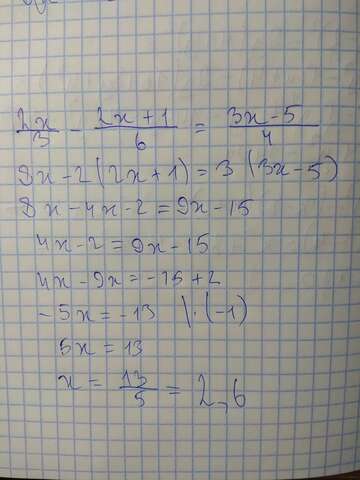 2x/3 - (2x+1)/6 = (3x-5)/4
8x-2(2x+1)=3(3x-5)
8x-4x-2=9x-15
4x-2=9x-15
4x-9x=-15+2
-5x=-13 |·(-1)
5x=13
x = 13/5 = 2,6